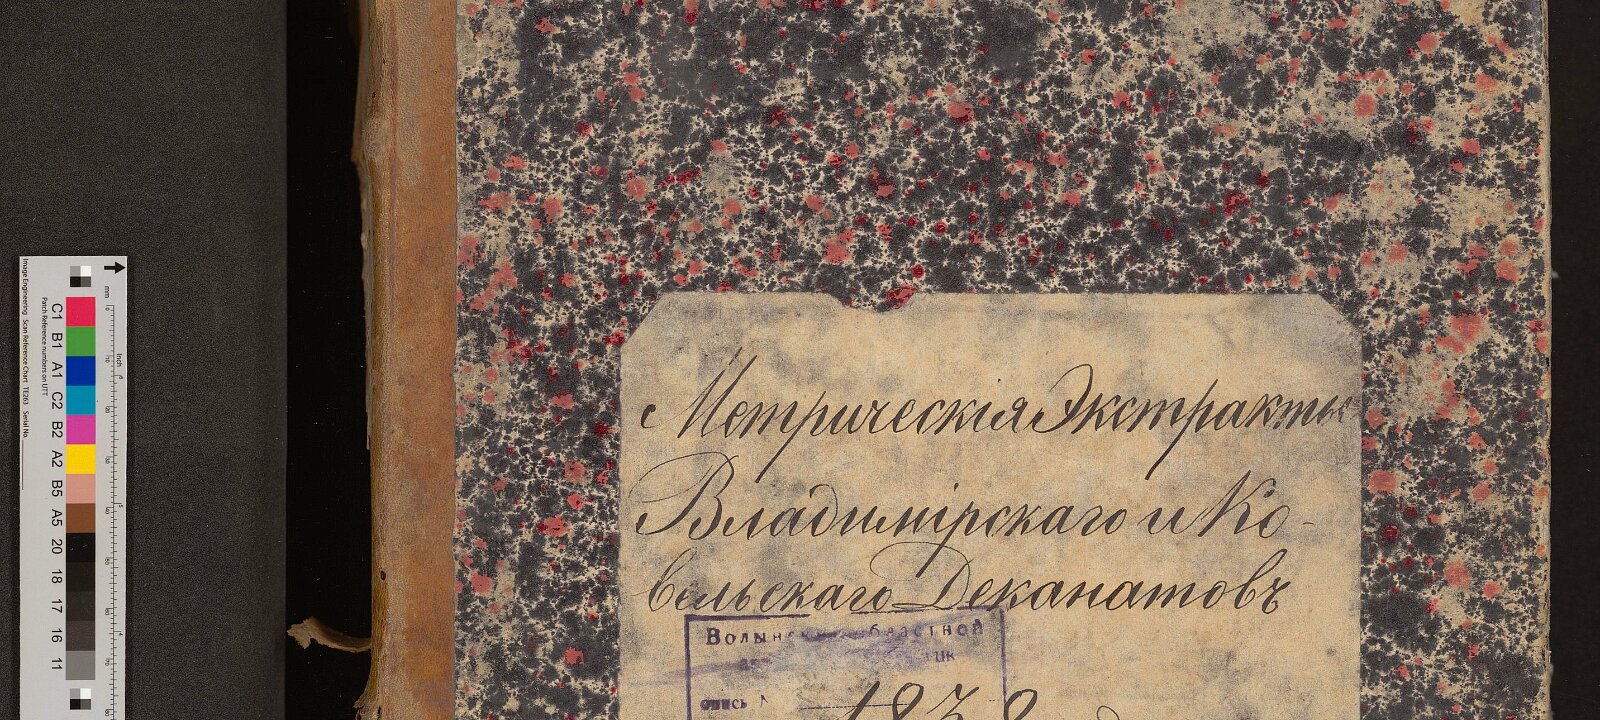 Метрическія Экстракты
Владимірскаго и Ко-
вельскаго Деканатовъ
областной
опись
183
Image Engineering Scan Reference Chart TE263 Serial No.
Patch Reference numbers on UTT
C1 B1 A1 C2 B2 A2 B5 A5 20 18 17 16 11
mm
Inch